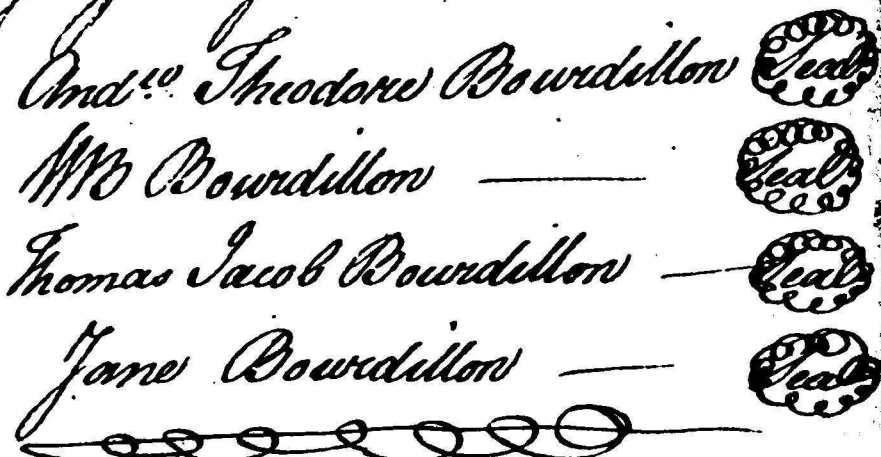 And.ʷ Theodore Bourdillon Seal
WB Bourdillon Seal
Thomas Jacob Bourdillon Seal
Jane Bourdillon Seal